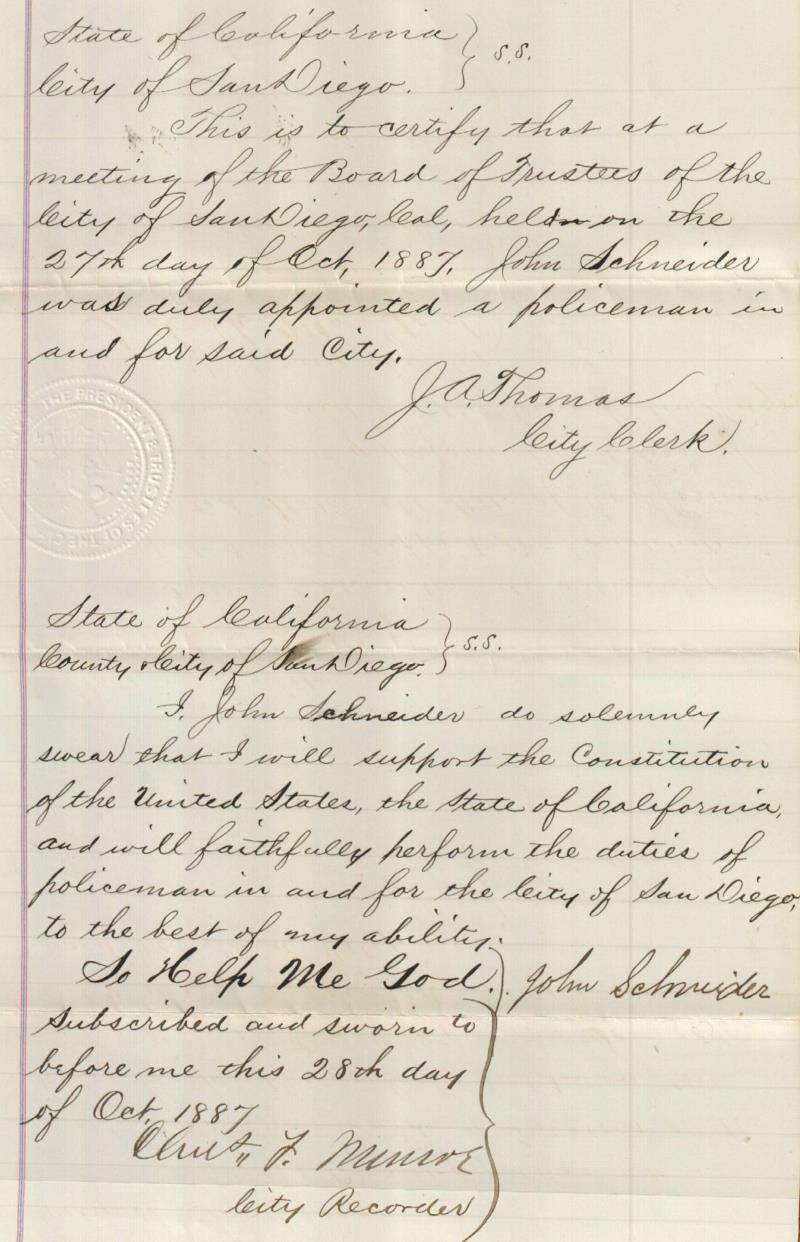 State of California } s.s.
City of San Diego.
This is to certify that at a
meeting of the Board of Trustees of the
City of San Diego, Cal, held on the
27th day of Oct, 1887. John Schneider
was duly appointed a policeman in
and for said City.
J. A. Thomas
City Clerk.
THE PRESIDENT & TRUSTEES OF THE
State of California } s.s.
County & City of San Diego.
I. John Schneider do solemnly
swear that I will support the Constitution
of the United States, the State of California,
and will faithfully perform the duties of
policeman in and for the City of San Diego,
to the best of my ability.
So Help Me God. } John Schneider
Subscribed and sworn to
before me this 28th day
of Oct, 1887
F. Munroe
City Recorder